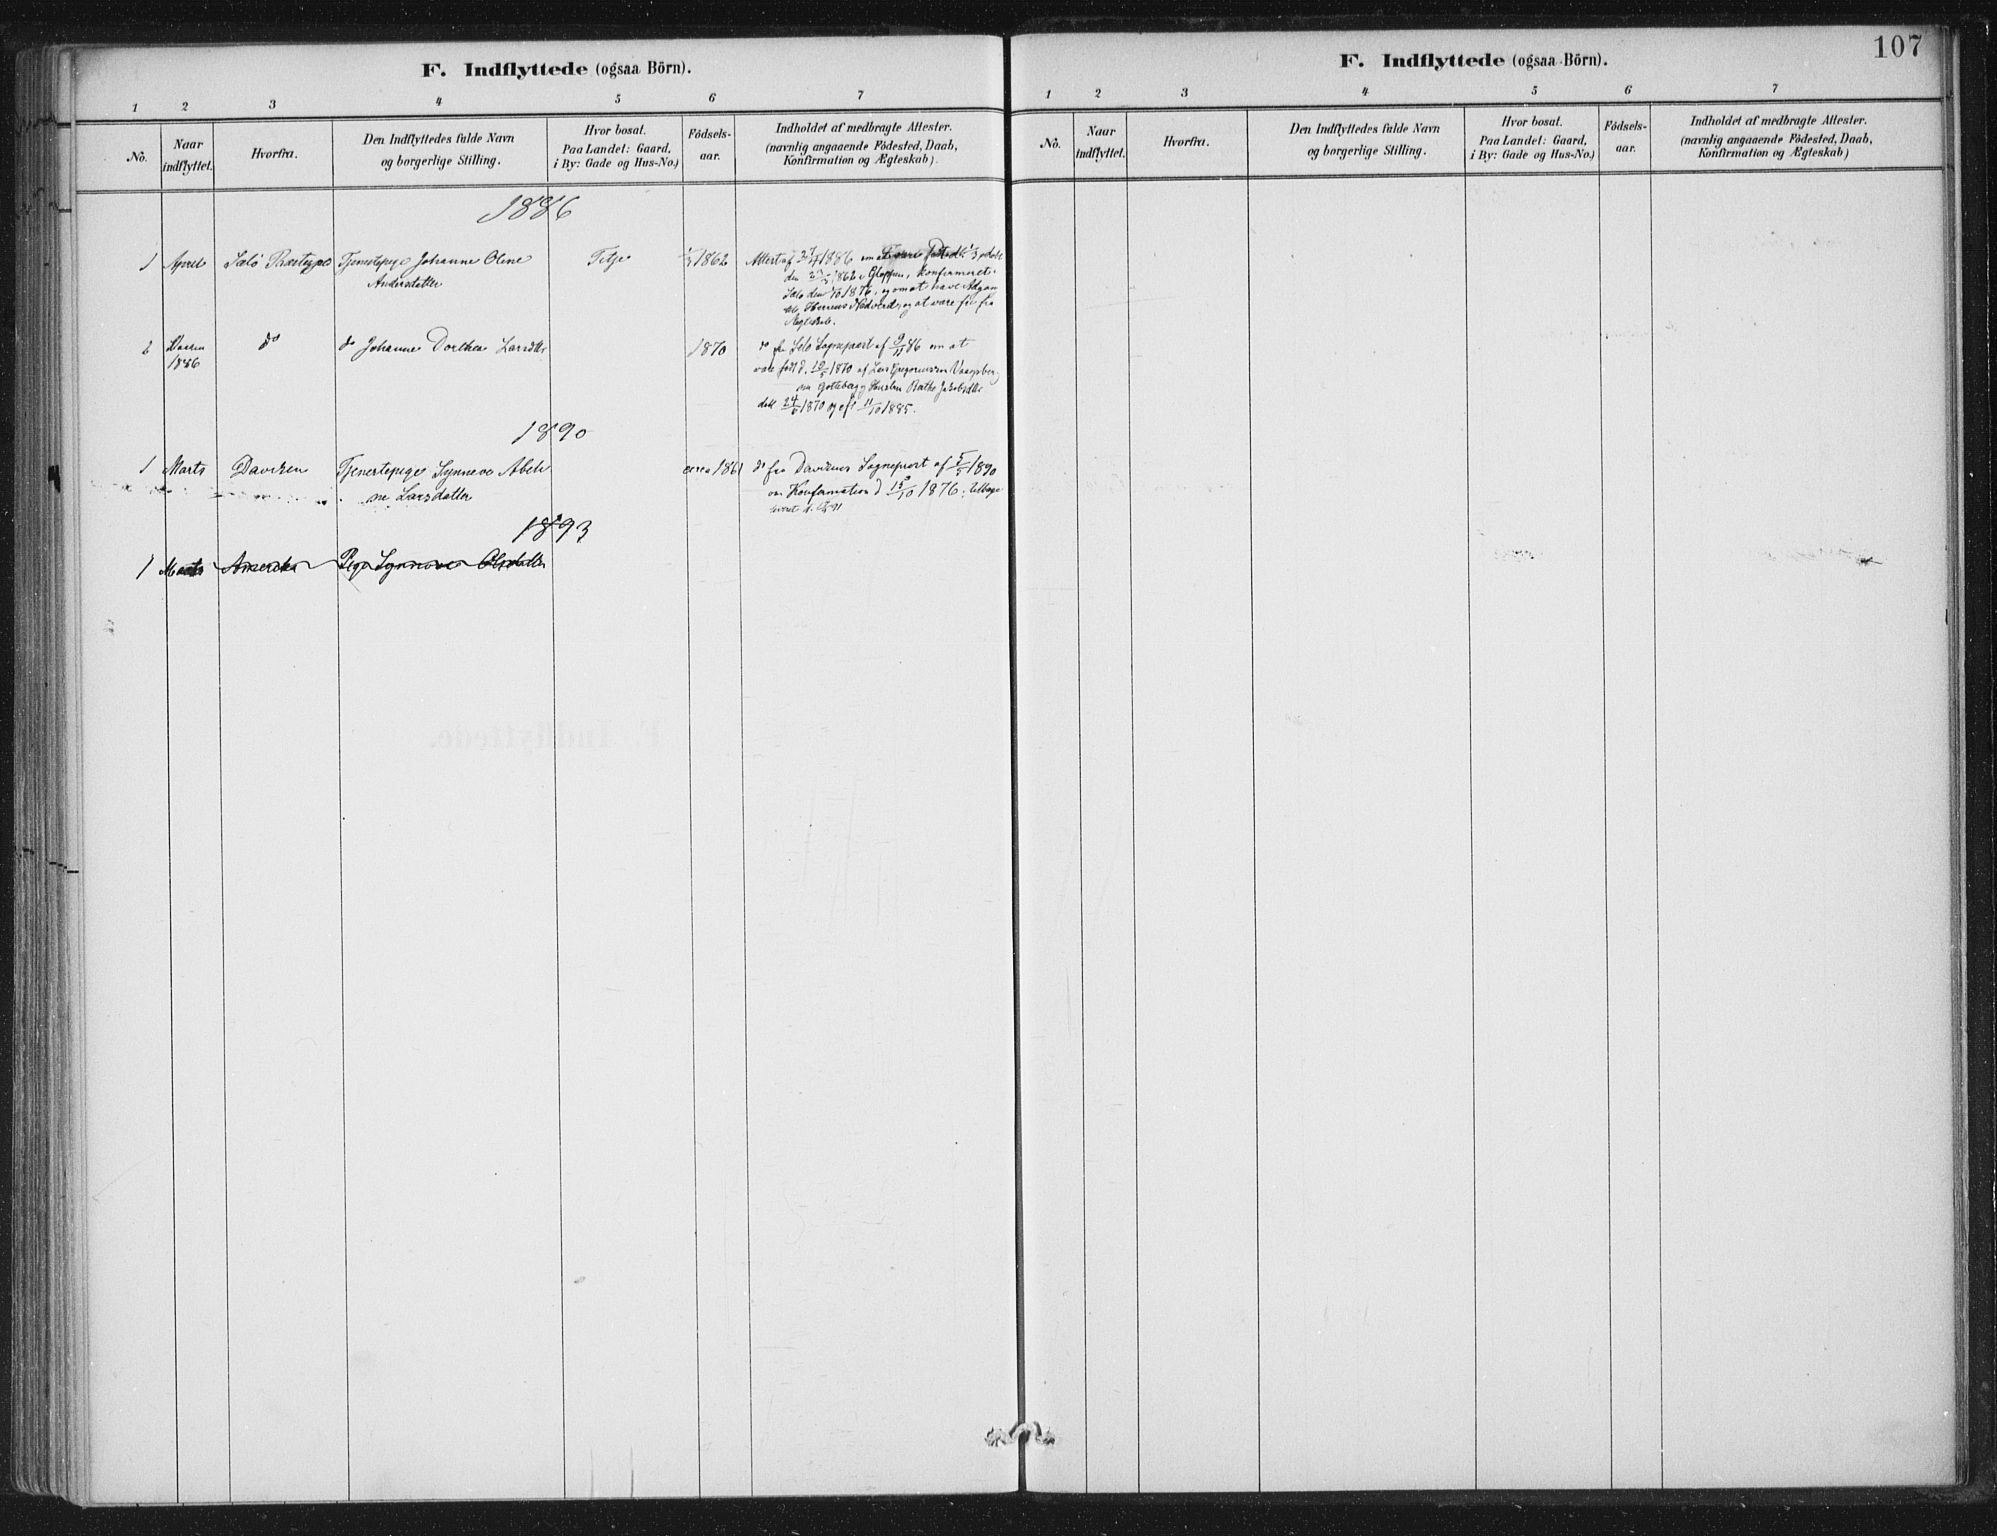 107
F. Indflyttede (ogsaa Börn).
1 2 3 4 5 6 7
No.
Naar indflyttet.
Hvorfra.
Den Indflyttedes fulde Navn
og borgerlige Stilling.
Hvor bosat.
Paa Landet: Gaard,
i By: Gade og Hus-No.)
Födsels-
aar.
Indholdet af medbragte Attester.
(navnlig angaaende Födested, Daab,
Konfirmation og Ægteskab)
1886
1 April Selö Tjenestepige Johanne Oline 1862 Attest af 1886
Andersdatter
den 1862 i Gloppen, konfirmeret i
Selö den 1876, og om at have Adgan
Herrens Nadverd, og at være fri fra
Ægteskab.
2 1886 do do Johanne Dorthea Larsdtr 1870 do fra Selö Sognepræst af 86 om at
være född d. 1870 af Lars Gregoriussen
Jakobsdtr
döbt 24 1870 og 1885.
1890
1 Marts Daviken Tjenestepige Synneve Abeli circa 1861 do fra Davikens Sognepræst af 1890
ne Larsdatter
om Konfirmation d 15/10 1876. tilbage
leveret d. 91
1893
1 Marts Amerika Pige Synneve Olsdatter
F. Indflyttede (ogsaa Börn).
1 2 3 4 5 6 7
No.
Naar
indflyttet.
Hvorfra.
Den Indflyttedes fulde Navn
og borgerlige Stilling.
Hvor bosat.
Paa Landet: Gaard,
i By: Gade og Hus-No.)
Födsels-
aar.
Indholdet af medbragte Attester.
(navnlig angaaende Födested, Daab,
Konfirmation og Ægteskab)